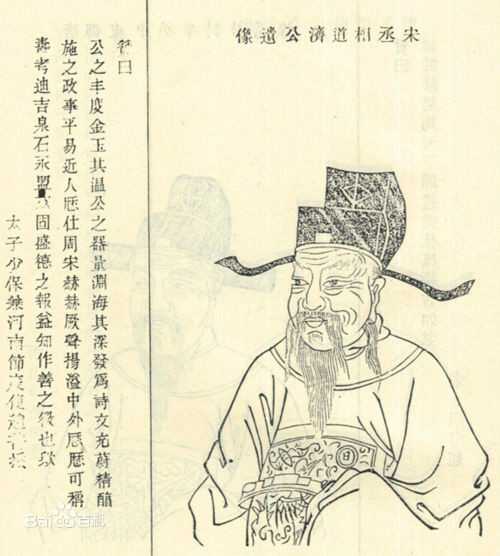 宋丞相道濟公遺像
贊曰
公之丰度金玉其温公之器量淵海其深發爲詩文充蔚精醇
施之政事平易近人歷仕周宋赫赫厥聲揚溢中外歷歷可稱
壽考迪吉泉石永盟固盛德之報益知作善之徵也歟
太子少保兼河南節度使趙
Bai百科